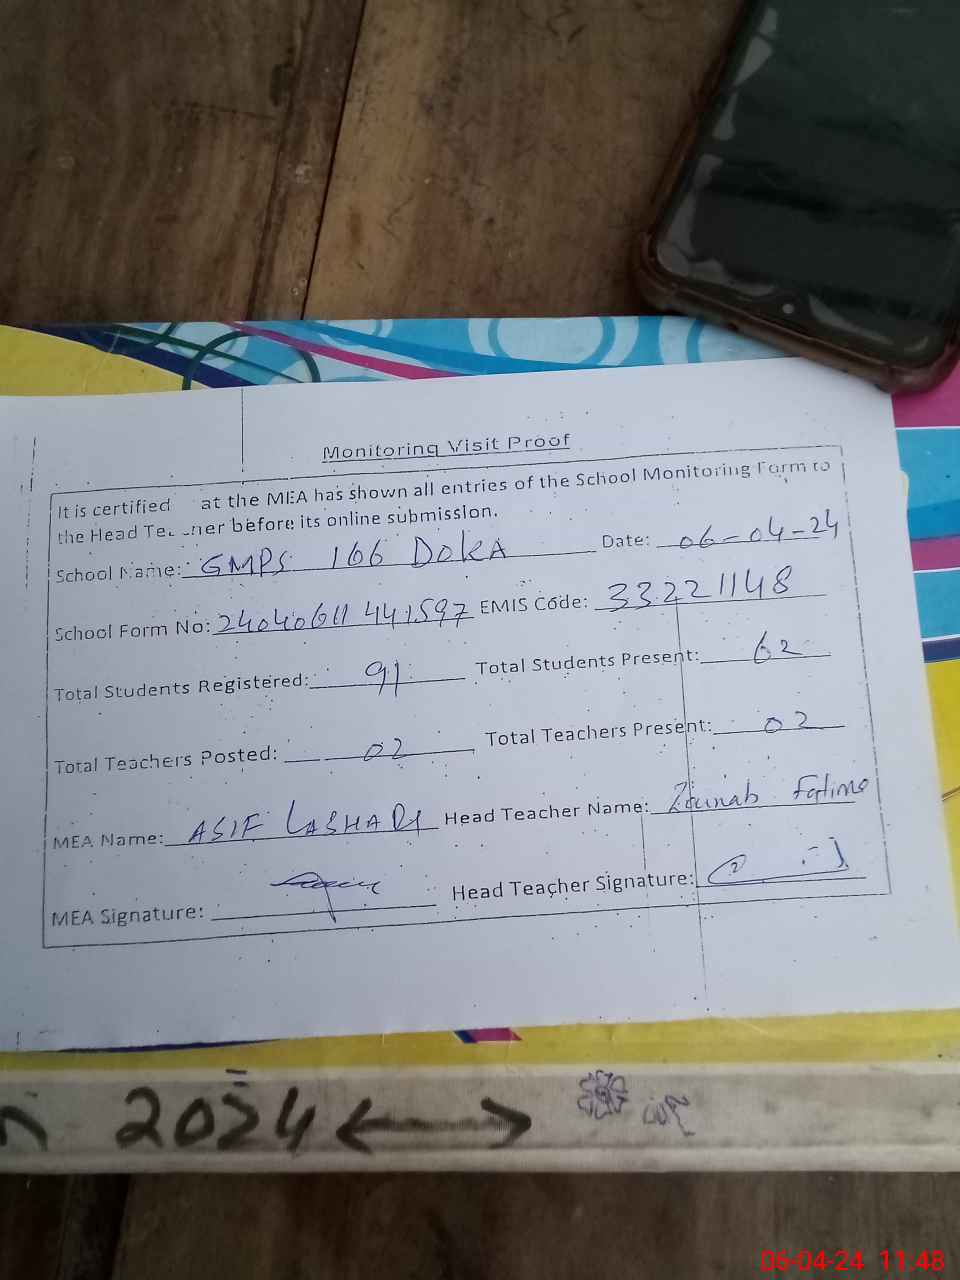 Monitoring Visit Proof
It is certified at the MEA has shown all entries of the School Monitoring Form to
the Head Te ner before its online submission.
School Name: GMPS 166 DOKA Date: 06-04-24
School Form No: 24040611441597 EMIS Code: 33221148
Total Students Registered: 91 Total Students Present: 62
Total Teachers Posted: 02 Total Teachers Present: 02
MEA Name: ASIF LASHARI Head Teacher Name: Fatima
MEA Signature: Head Teacher Signature:
2024
06-04-24 11:48